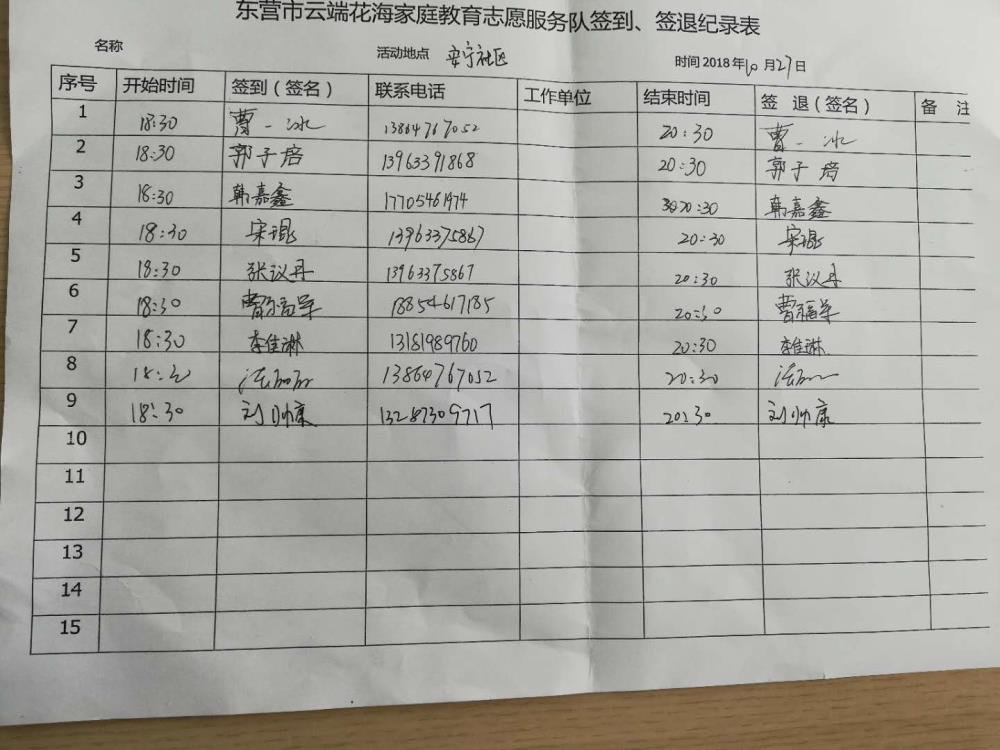 东营市云端花海家庭教育志愿服务队签到、签退纪录表
名称 活动地点 安宁社区 时间 2018年10月27日
序号 开始时间 签到（签名） 联系电话 工作单位 结束时间 签 退（签名） 备 注
1 18:30 曹一冰 13864767052 20:30 曹一冰
2 18:30 郭子培 13963391868 20:30 郭子培
3 18:30 韩嘉鑫 17705461974 20:30 韩嘉鑫
4 18:30 宋琨 13963375867 20:30 宋琨
5 18:30 张议丹 13963375867 20:30 张议丹
6 18:30 18854617185 20:30
7 18:30 李佳琳 13181989760 20:30 李佳琳
8 13864767052 20:30
9 18:30 刘帅康 13287309717 20:30 刘帅康
10
11
12
13
14
15